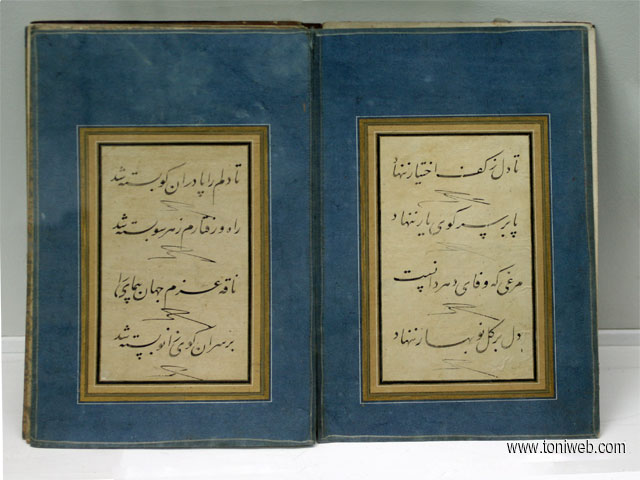 تا دل ز کف اختیار ننهاد
پا بر سر کوی یار ننهاد
مرغی که وفای دهر دانست
دل بر گل نو بهار ننهاد
تا دلم را پا در ان کو بسته شد
راه و رفتارم ز هر سو بسته شد
ناقه عزم جهان پیمای را
بر سر ان کوی زانو بسته شد
www.toniweb.com